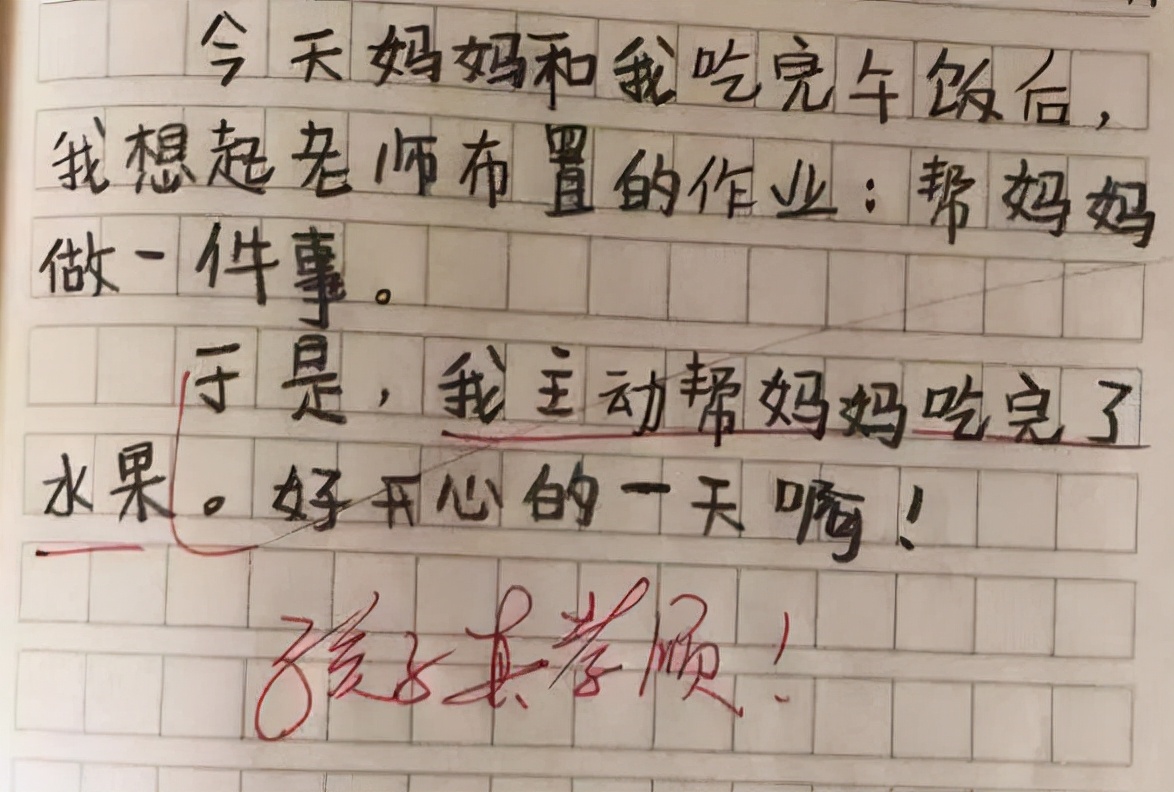 今天妈妈和我吃完午饭后，
我想起老师布置的作业：帮妈妈
做一件事。
于是，我主动帮妈妈吃完了
水果。好开心的一天啊！
孩子真孝顺！